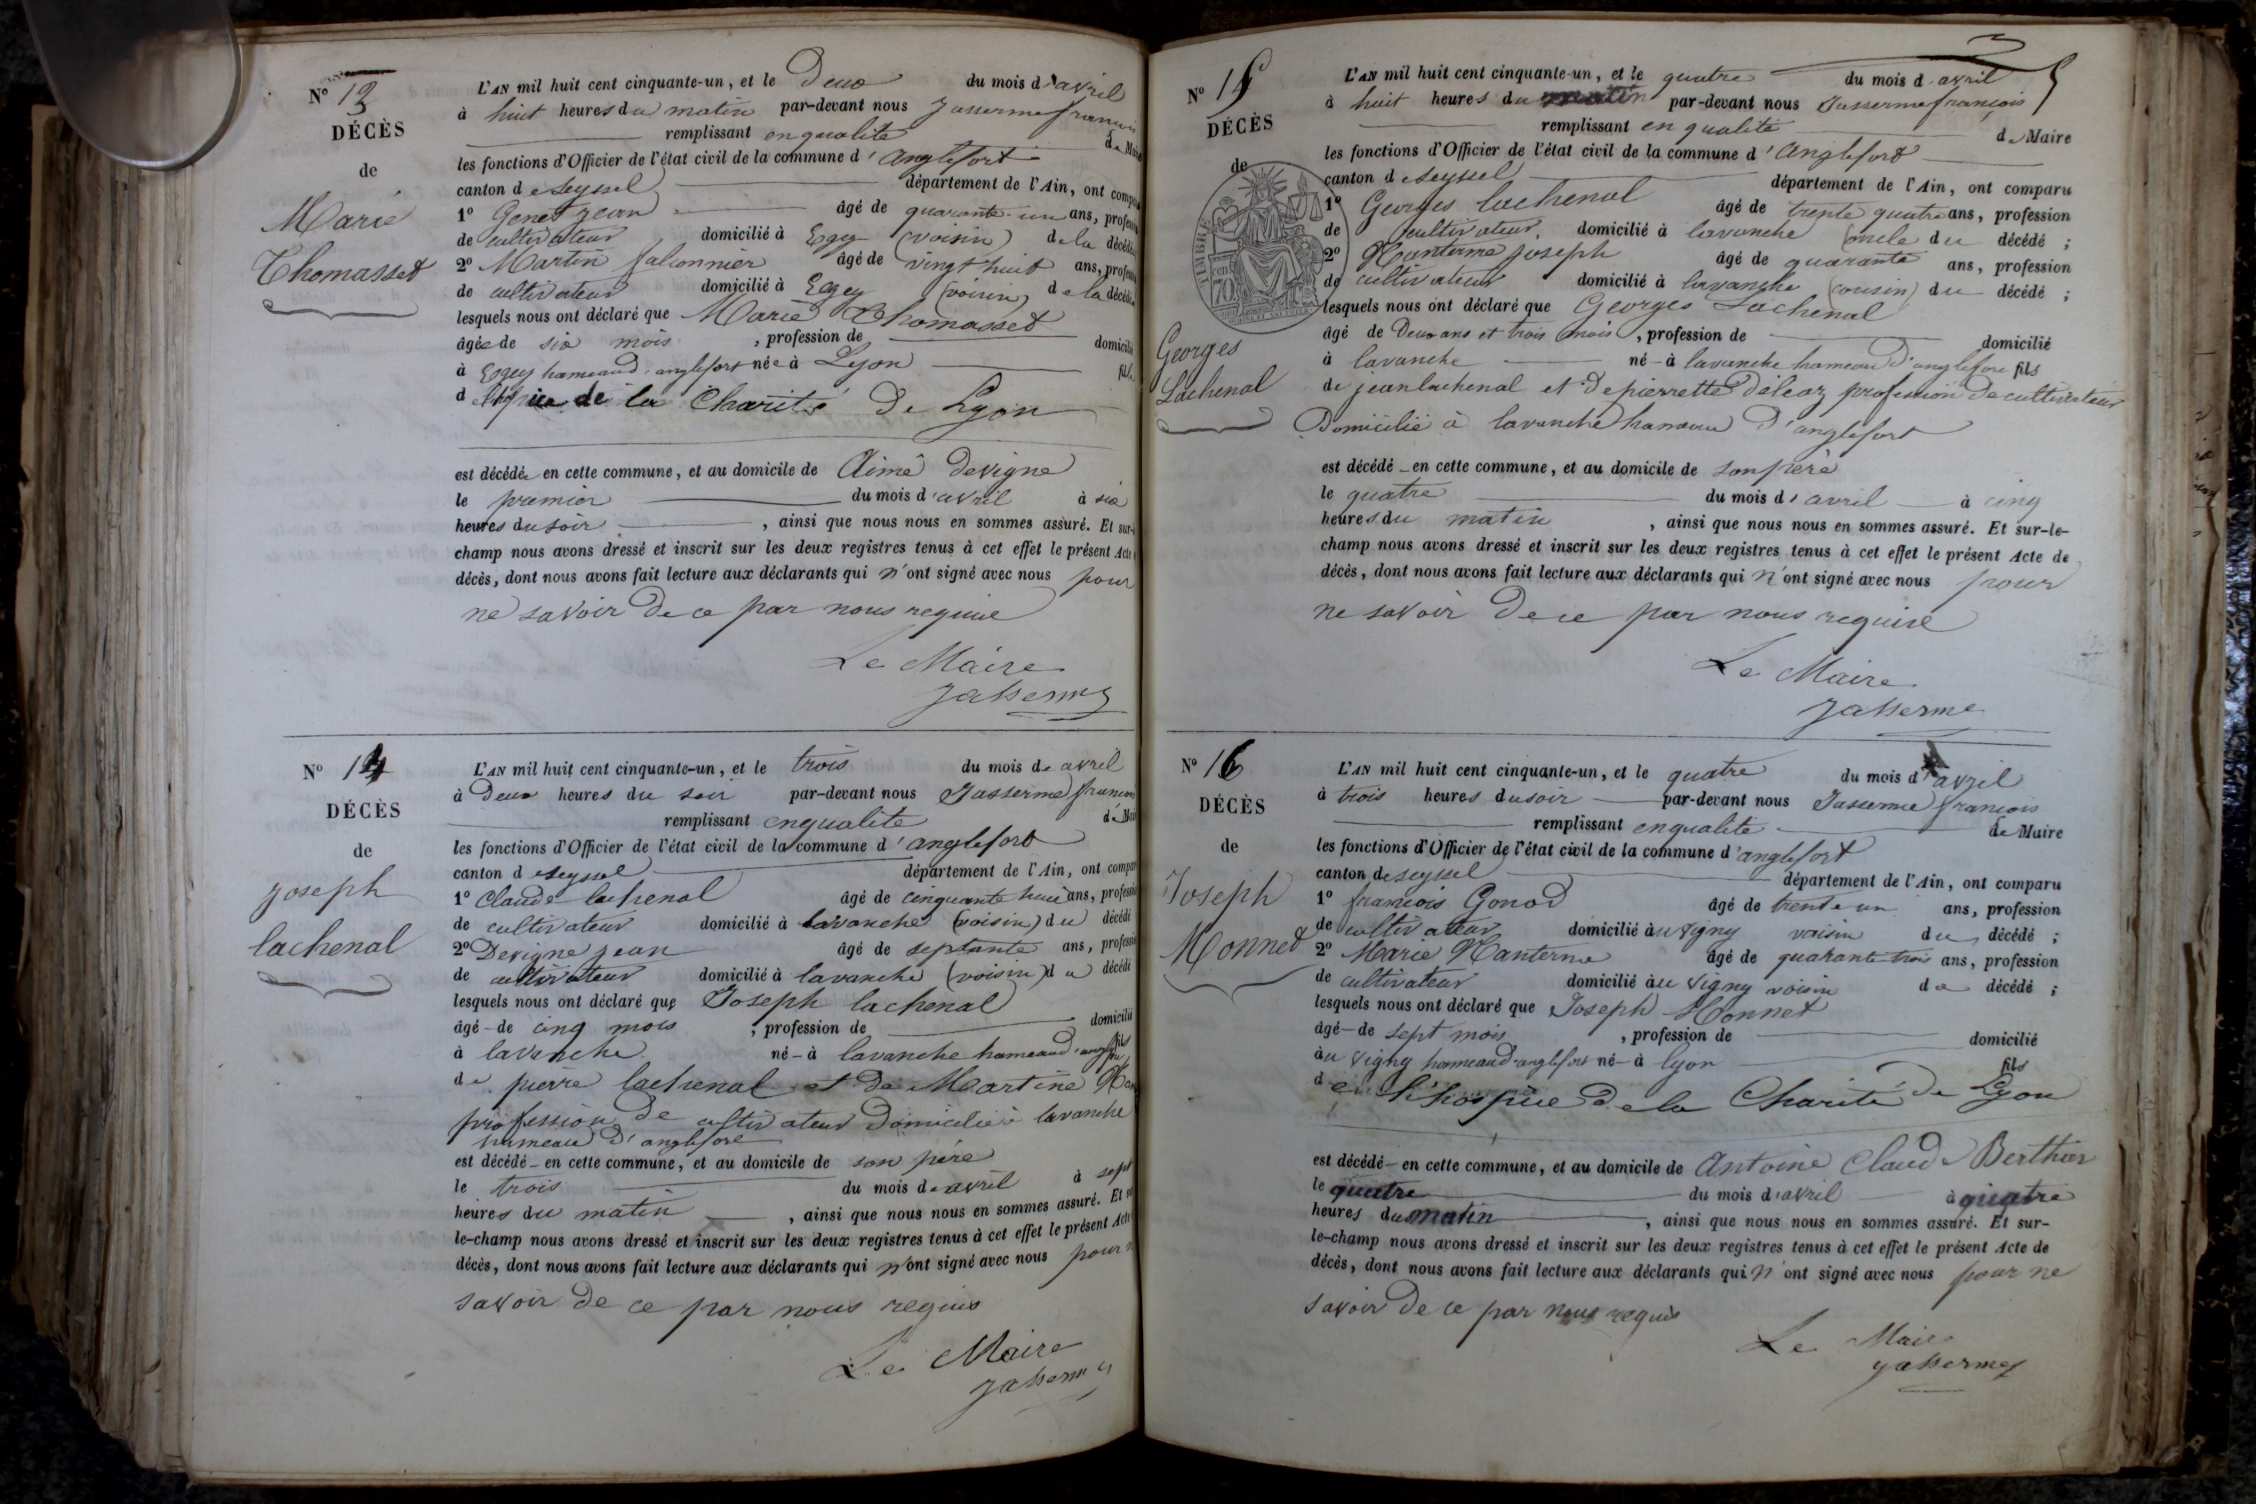 N° 13
DÉCÈS
de
Marie
Thomasset
L'AN mil huit cent cinquante-un, et le Deux du mois d'avril
à huit heures du matin par-devant nous Jasserme françois
remplissant en qualite de Maire
les fonctions d'Officier de l'état civil de la commune d'anglefort
canton de seyssel département de l'Ain, ont comparu
1° Genet jean âgé de quarante-un ans, profession
de cultivateur domicilié à Eogey (voisin) de la décédée
2° Martin falconnier âgé de vingt huit ans, profession
de cultivateur domicilié à Eogey (voisin) de la décédée
lesquels nous ont déclaré que Marie Thomasset
âgée de six mois, profession de domicilié
à Eogey hameaud'anglefort née à Lyon fille
d de la Charité De Lyon
est décédée en cette commune, et au domicile de Aimé Devigne
le premier du mois d'avril à six
heures du soir, ainsi que nous nous en sommes assuré. Et sur-le-
champ nous avons dressé et inscrit sur les deux registres tenus à cet effet le présent Acte
décès, dont nous avons fait lecture aux déclarants qui n'ont signé avec nous pour
ne savoir De ce par nous requise
Le Maire
Jasserme
N° 14
DÉCÈS
de
joseph
lachenal
L'AN mil huit cent cinquante-un, et le trois du mois de avril
à Deux heures du soir par-devant nous Jasserme françois
remplissant en qualite de Maire
les fonctions d'Officier de l'état civil de la commune d'anglefort
canton de seyssel département de l'Ain, ont comparu
1° Claude lachenal âgé de cinquante huit ans, profession
de cultivateur domicilié à lavanche (voisin) du décédé
2° Devigne jean âgé de septante ans, profession
de cultivateur domicilié à lavanche (voisin) du décédé
lesquels nous ont déclaré que Joseph lachenal
âgé de cinq mois, profession de domicilié
à lavanche né à lavanche hameaud'anglefort fils
de pierre lachenal et de Martine
profession de cultivateur Domicilié à lavanche
hameau D'anglefort
est décédé en cette commune, et au domicile de son père
le trois du mois de avril à sept
heures du matin, ainsi que nous nous en sommes assuré. Et sur-
le-champ nous avons dressé et inscrit sur les deux registres tenus à cet effet le présent Acte
décès, dont nous avons fait lecture aux déclarants qui n'ont signé avec nous pour ne
savoir de ce par nous requis
Le Maire
Jasserme
N° 15
DÉCÈS
de
Georges
Lachenal
TIMBRE
L'AN mil huit cent cinquante-un, et le quatre du mois d'avril
à huit heures du matin par-devant nous Jasserme françois
remplissant en qualite de Maire
les fonctions d'Officier de l'état civil de la commune d'anglefort
canton de seyssel département de l'Ain, ont comparu
1° Georges lachenal âgé de trente quatre ans, profession
de cultivateur domicilié à lavanche (oncle du décédé ;
2° Nanterme joseph âgé de quarante ans, profession
de cultivateur domicilié à lavanche (cousin) du décédé ;
lesquels nous ont déclaré que Georges Lachenal
âgé de Deux ans et trois mois, profession de domicilié
à lavanche né à lavanche hameau D'anglefort fils
de jean lachenal et De pierrette Deleaz profession De cultivateur
Domicilié à lavanche hameau D'anglefort
est décédé en cette commune, et au domicile de son père
le quatre du mois d'avril à cinq
heures du matin, ainsi que nous nous en sommes assuré. Et sur-le-
champ nous avons dressé et inscrit sur les deux registres tenus à cet effet le présent Acte de
décès, dont nous avons fait lecture aux déclarants qui n'ont signé avec nous pour
ne savoir De ce par nous requise
Le Maire
Jasserme
N° 16
DÉCÈS
de
Joseph
Monnet
L'AN mil huit cent cinquante-un, et le quatre du mois d'avril
à trois heures du soir par-devant nous Jasserme françois
remplissant en qualite de Maire
les fonctions d'Officier de l'état civil de la commune d'anglefort
canton de seyssel département de l'Ain, ont comparu
1° francois Gonod âgé de trente un ans, profession
de cultivateur domicilié àu vigny voisin du décédé ;
2° Marie Nanterme âgé de quarante trois ans, profession
de cultivateur domicilié àu vigny voisin du décédé ;
lesquels nous ont déclaré que Joseph Monnet
âgé de sept mois, profession de domicilié
àu vigny hameaud'anglefort né à lyon fils
de l'hospice De la Charité De Lyon
est décédé en cette commune, et au domicile de Antoine Claude Berthier
le quatre du mois d'avril à quatre
heures du matin, ainsi que nous nous en sommes assuré. Et sur-
le-champ nous avons dressé et inscrit sur les deux registres tenus à cet effet le présent Acte de
décès, dont nous avons fait lecture aux déclarants qui n'ont signé avec nous pour ne
savoir De ce par nous requis
Le Maire
Jasserme